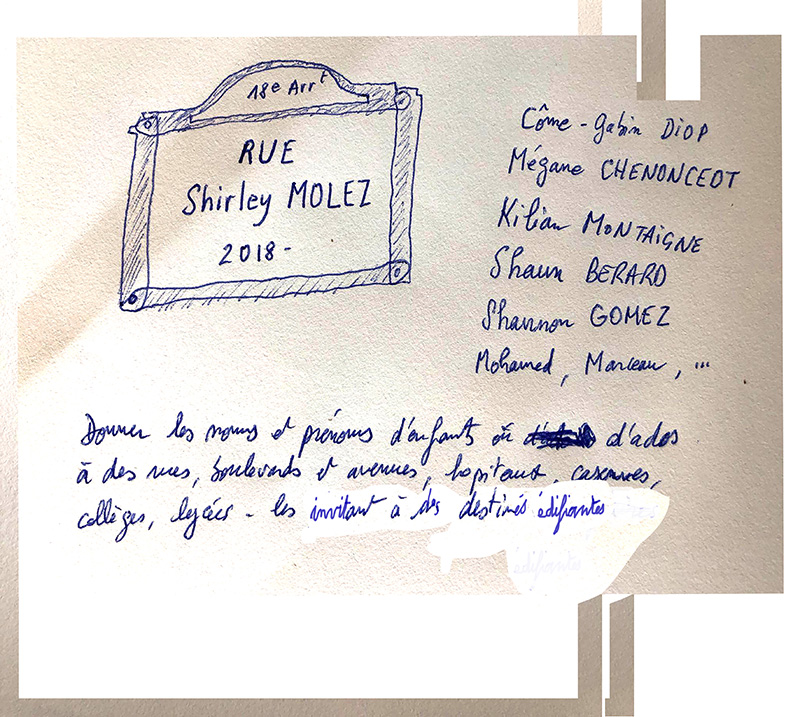 18e Arrt
RUE
Shirley MOLEZ
2018-
Côme-Gabin DIOP
Mégane CHENONCEOT
Kilian MONTAIGNE
Shaun BERARD
Shannon GOMEZ
Mohamed, Marceau, ...
Donner les noms et prénoms d'enfants ou d'ados
à des rues, boulevards et avenues, hopitaux, casernes,
collèges, lycées - les invitant à des destinés édifiantes
édifiantes